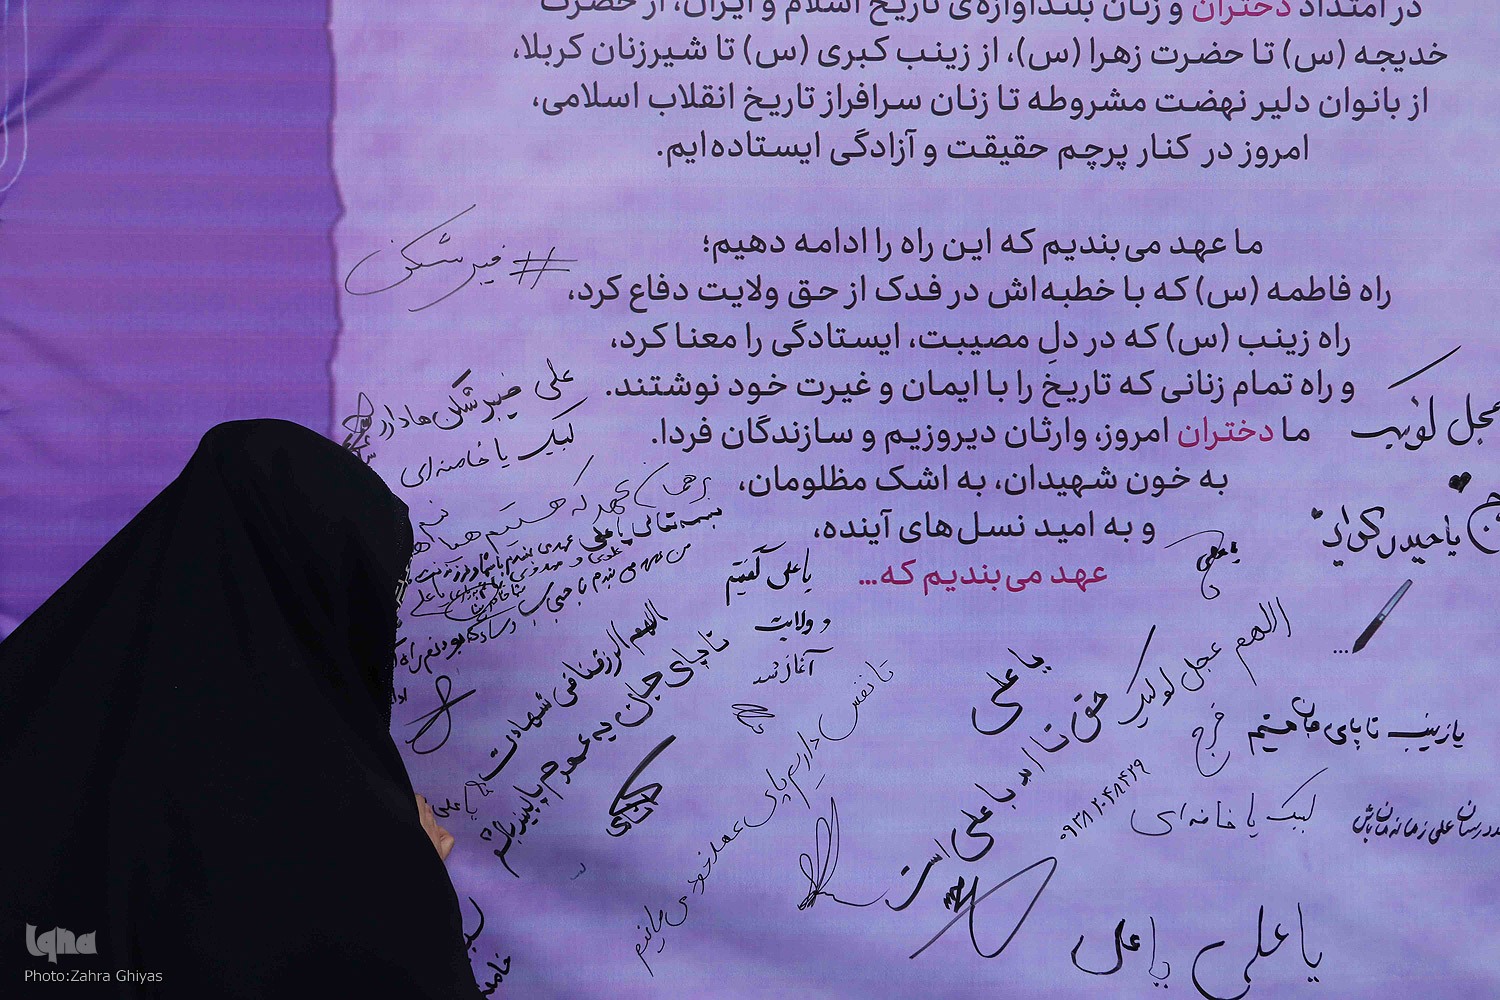 در امتداد دختران و زنان بلندآوازه‌ی تاریخ اسلام و ایران، از حضرت
خدیجه (س) تا حضرت زهرا (س)، از زینب کبری (س) تا شیرزنان کربلا،
از بانوان دلیر نهضت مشروطه تا زنان سرافراز تاریخ انقلاب اسلامی،
امروز در کنار پرچم حقیقت و آزادگی ایستاده‌ایم.
ما عهد می‌بندیم که این راه را ادامه دهیم؛
راه فاطمه (س) که با خطبه‌اش در فدک از حق ولایت دفاع کرد،
راه زینب (س) که در دلِ مصیبت، ایستادگی را معنا کرد،
و راه تمام زنانی که تاریخ را با ایمان و غیرت خود نوشتند.
ما دختران امروز، وارثان دیروزیم و سازندگان فردا.
به خون شهیدان، به اشک مظلومان،
و به امید نسل‌های آینده،
عهد می‌بندیم که...
...
#خیبرشکن
علی خیبر شکن ها دارد
لبیک یا خامنه‌ای
بر همان عهد که هستیم
یا علی گفتیم
و ولایت
آغاز شد
اللهم الرزقنا فی شهادت
تا پای جان به عهدم پایبند باشم
تا نفس داریم پای عهد خود می‌مانیم
یا علی
حق تا ابد با علی است
اللهم عجل لولیک
فرج
عجل لولیک
یا حیدر کرار
یا علی
یا زینب تا پای جان هستیم
لبیک یا خامنه‌ای
۰۹۳۸۲۰۴۸۴۲۹
یا علی
یا علی
یا علی
Iqna
Photo:Zahra Ghiyas